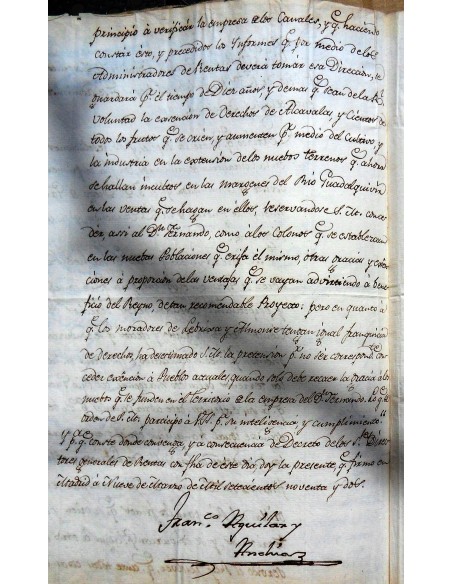 principio à verificár la empresa de los Canales, y q.e haciendo
constar esto, y precedidos los Informes q.e por medio de los
Administradores de Rentas deverá tomar esa Direccion, se
guardará p.r el tiempo de Diez años y demas q.e sean de la R.l
voluntad la exencion de Derechos de Alcavalas, y Cientos de
todos los frutos q.e se crien, y aumenten p.r medio del Cultivo y
la industria en la extension de los nuebos terrenos q.e ahora
se hallan incultos en las margenes del Rio Guadalquivir
en las ventas q.e se hagan en ellos, reservandose S. M. conce-
der, assi al D.n Fernando, como a los Colonos q.e se establezcan
en las nuebas Poblaciones q.e erija él mismo, otras gracias y
ciones à proporcion de las ventajas q.e se vayan advirtiendo à bene-
ficio del Reyno de tan recomendable Proyecto. pero en quanto à
q.e los moradores de Lebrija y tengan igual franquicia
de derechos, ha desestimado S. M. la pretension p.r no ser correspond.te con-
ceder exencion à Pueblos actuales, quando solo debe recaer la gracia à los
nuebos q.e se funden en el territorio de la empresa del D.n Fernando. Lo q.e de
orden de S. M. participo à V.S. p.a su inteligencia, y cumplimiento.
Y p.a q.e conste donde convenga, y a consecuencia de Decreto de los S.res Direc-
tores generales de Rentas con fha de este dia doy la presente, q.e firmo en
Madrid à Nueve de Marzo de Mil setecientos noventa y dos.
Fran.co Aguilar y